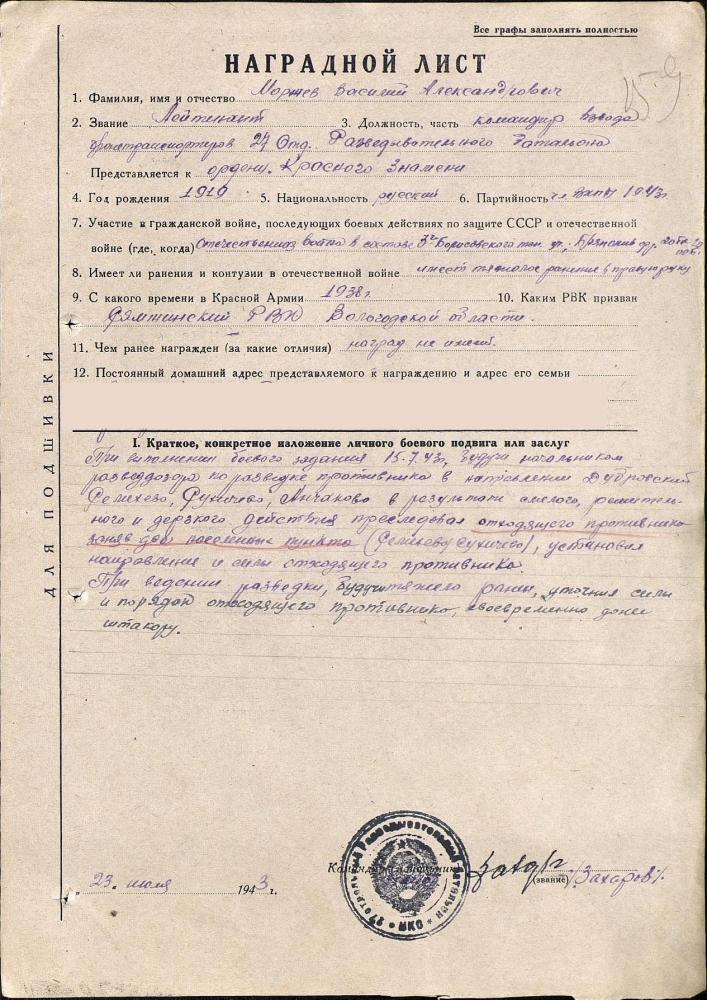 Все графы заполнять полностью
НАГРАДНОЙ ЛИСТ
1. Фамилия, имя и отчество Василий Александрович
2. Звание Лейтенант 3. Должность, часть командир взвода
бронетранспортеров Отд. Разведывательного Батальона
Представляется к ордену „Красного Знамени
4. Год рождения 1919 5. Национальность русский 6. Партийность чл. ВКП/б 1943г.
7. Участие в гражданской войне, последующих боевых действиях по защите СССР и отечественной
войне (где, когда) Отечественная война в составе Борисовского тан. уч., Брянский фр.
8. Имеет ли ранения и контузии в отечественной войне имеет тяжолое ранение в правую руку
9. С какого времени в Красной Армии 1938г 10. Каким РВК призван
Сямжинский РВК Вологодской области.
11. Чем ранее награжден (за какие отличия) наград не имеет.
12. Постоянный домашний адрес представляемого к награждению и адрес его семьи
I. Краткое, конкретное изложение личного боевого подвига или заслуг
При выполнении боевого задания 15.7.43г, будучи начальником
разведдозора по разведке противника в направлении Дубровский
Селихово, в результате смелого, решитель-
ного и дерзкого действия преследовал отходящего противника
заняв два населенных пункта установил
направление и силы отходящего противника.
При ведении разведки, будучи тяжело ранен, уточнил силы
и порядок отходящего противника, своевременно донес
штакору.
Командир
(звание) /Захаров/.
23. июля 1943 г.
ДЛЯ ПОДШИВКИ
Разведывательный Батальон